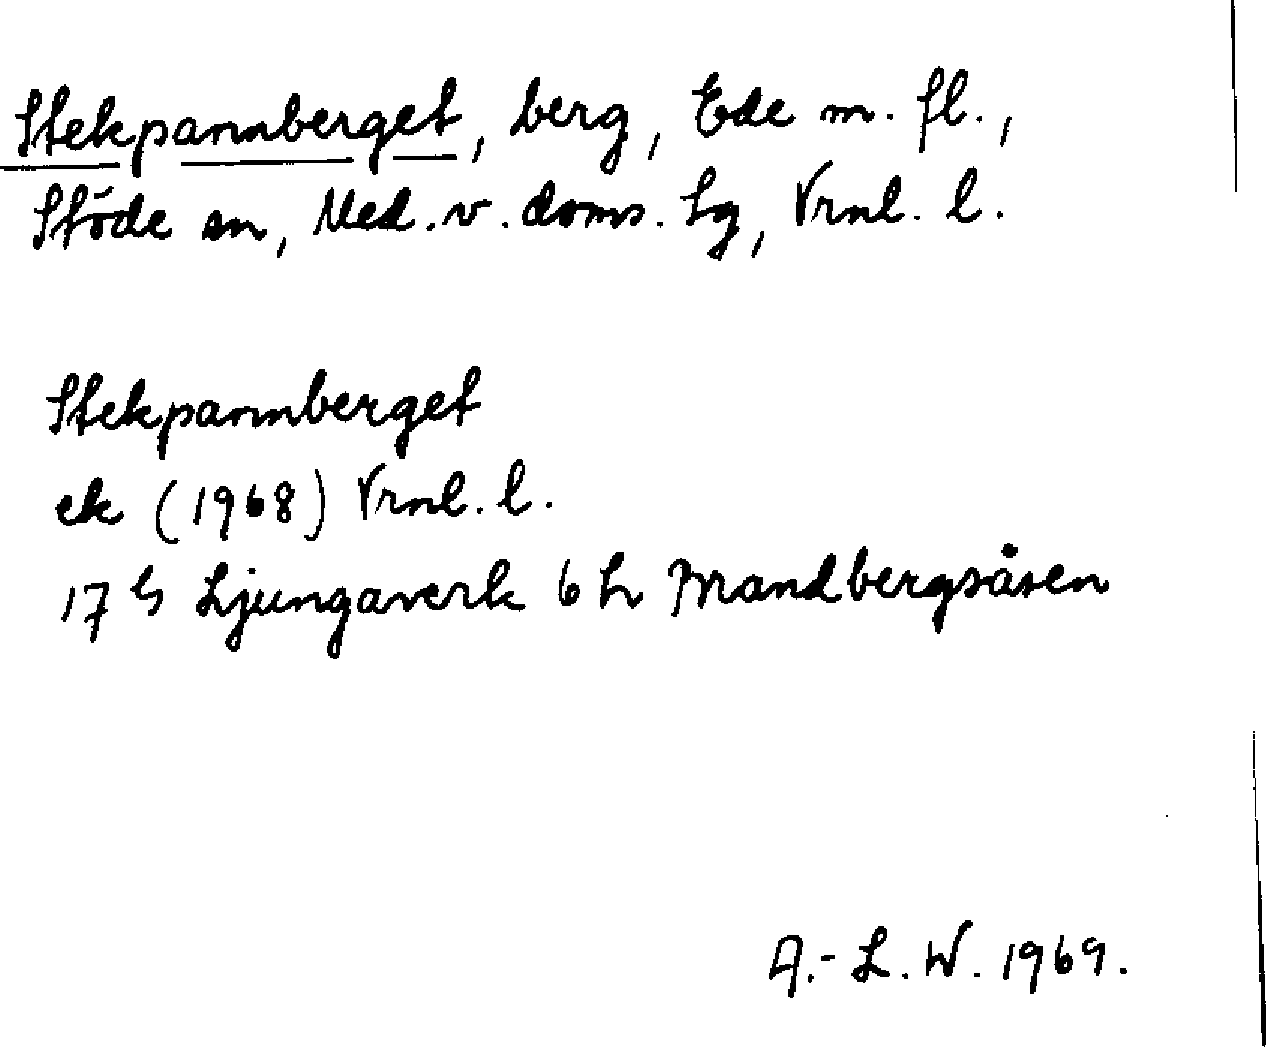 Stekpannberget, berg, Ede m. fl.,
Stöde sn, Med. v. doms. tg, Vrnl. l.
Stekpannberget
ek (1968) Vrnl. l.
17 G Ljungaverk 6 h Brandbergsåsen
A.-L. W. 1969.